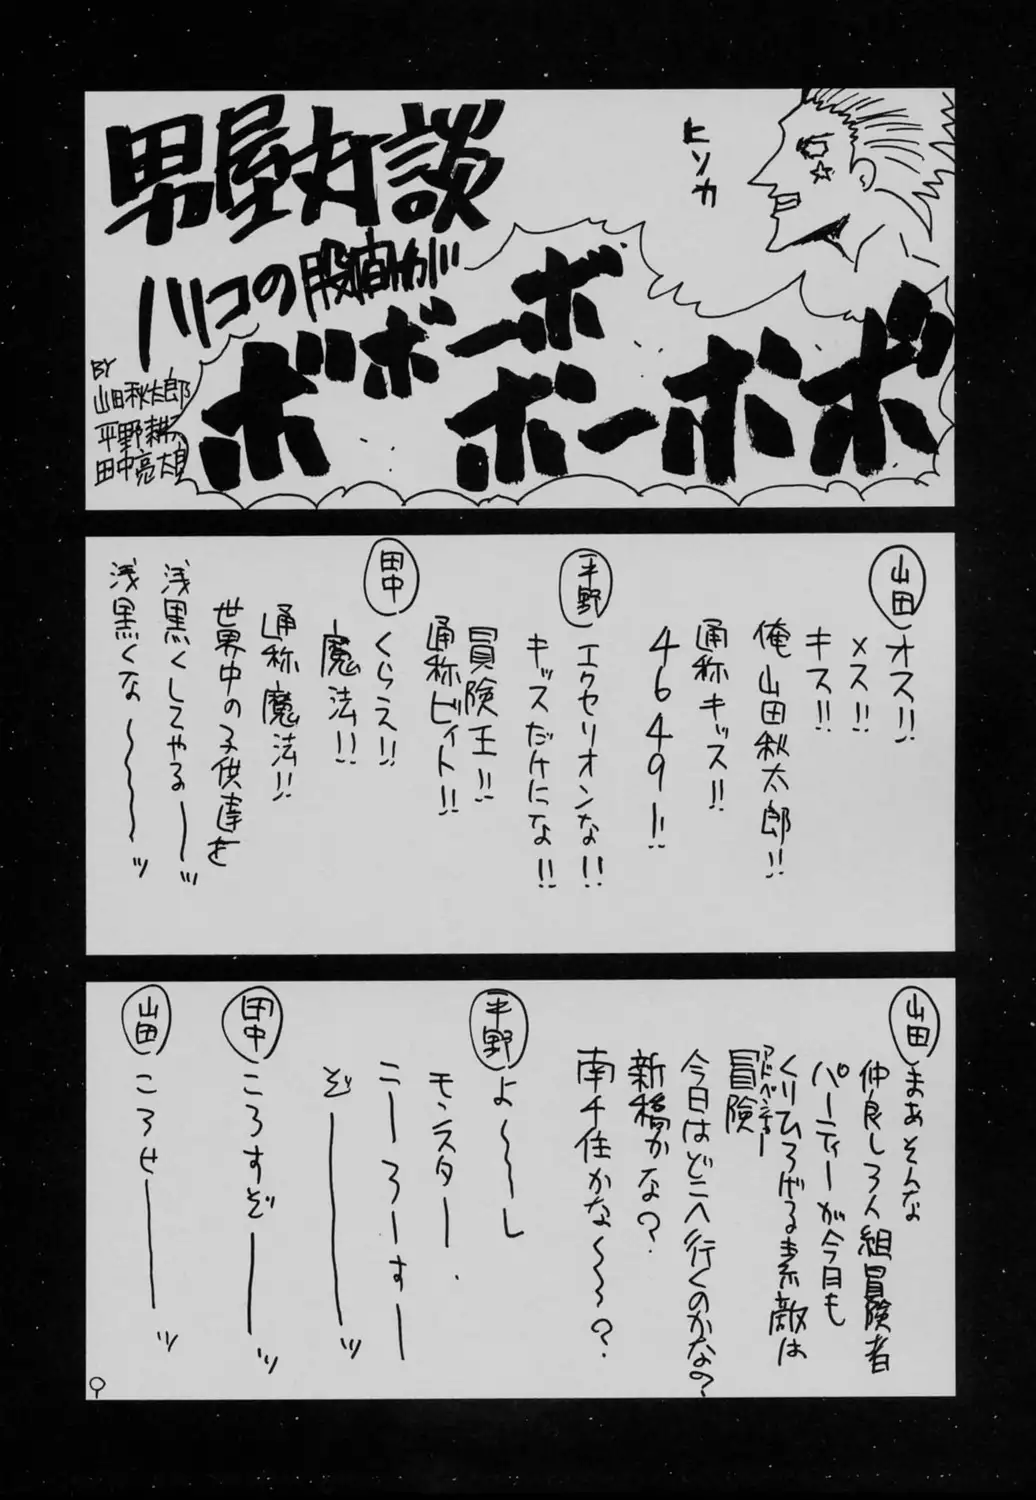 男屋対談
ハリコの股間が
ボボーボ
ボーボボ
ヒソカ
BY
山田秋太郎
平野耕太
田中亮太良
山田
オス!!
メス!!
キス!!
俺山田秋太郎!!
通称キッス!!
4649ー!!
平野
エクセリオンな!!
キッスだけにな!!
冒険王!!
通称ビィト!!
田中
くらえ!!
魔法!!
通称魔法!!
世界中の子供達を
浅黒くしてやる〜〜ッ
浅黒くな〜〜〜〜ッ
山田
まあそんな
仲良し3人組冒険者
パーティーが今日も
くりひろげる素敵な
冒険
アドベンチャー
今日はどこへ行くのかな?
新橋かな?
南千住かな〜〜〜?
平野
よ〜〜〜し
モンスター
こーろーすー
ぞ――――ッ
田中
ころすぞ――――ッ
山田
ころせ――――ッ